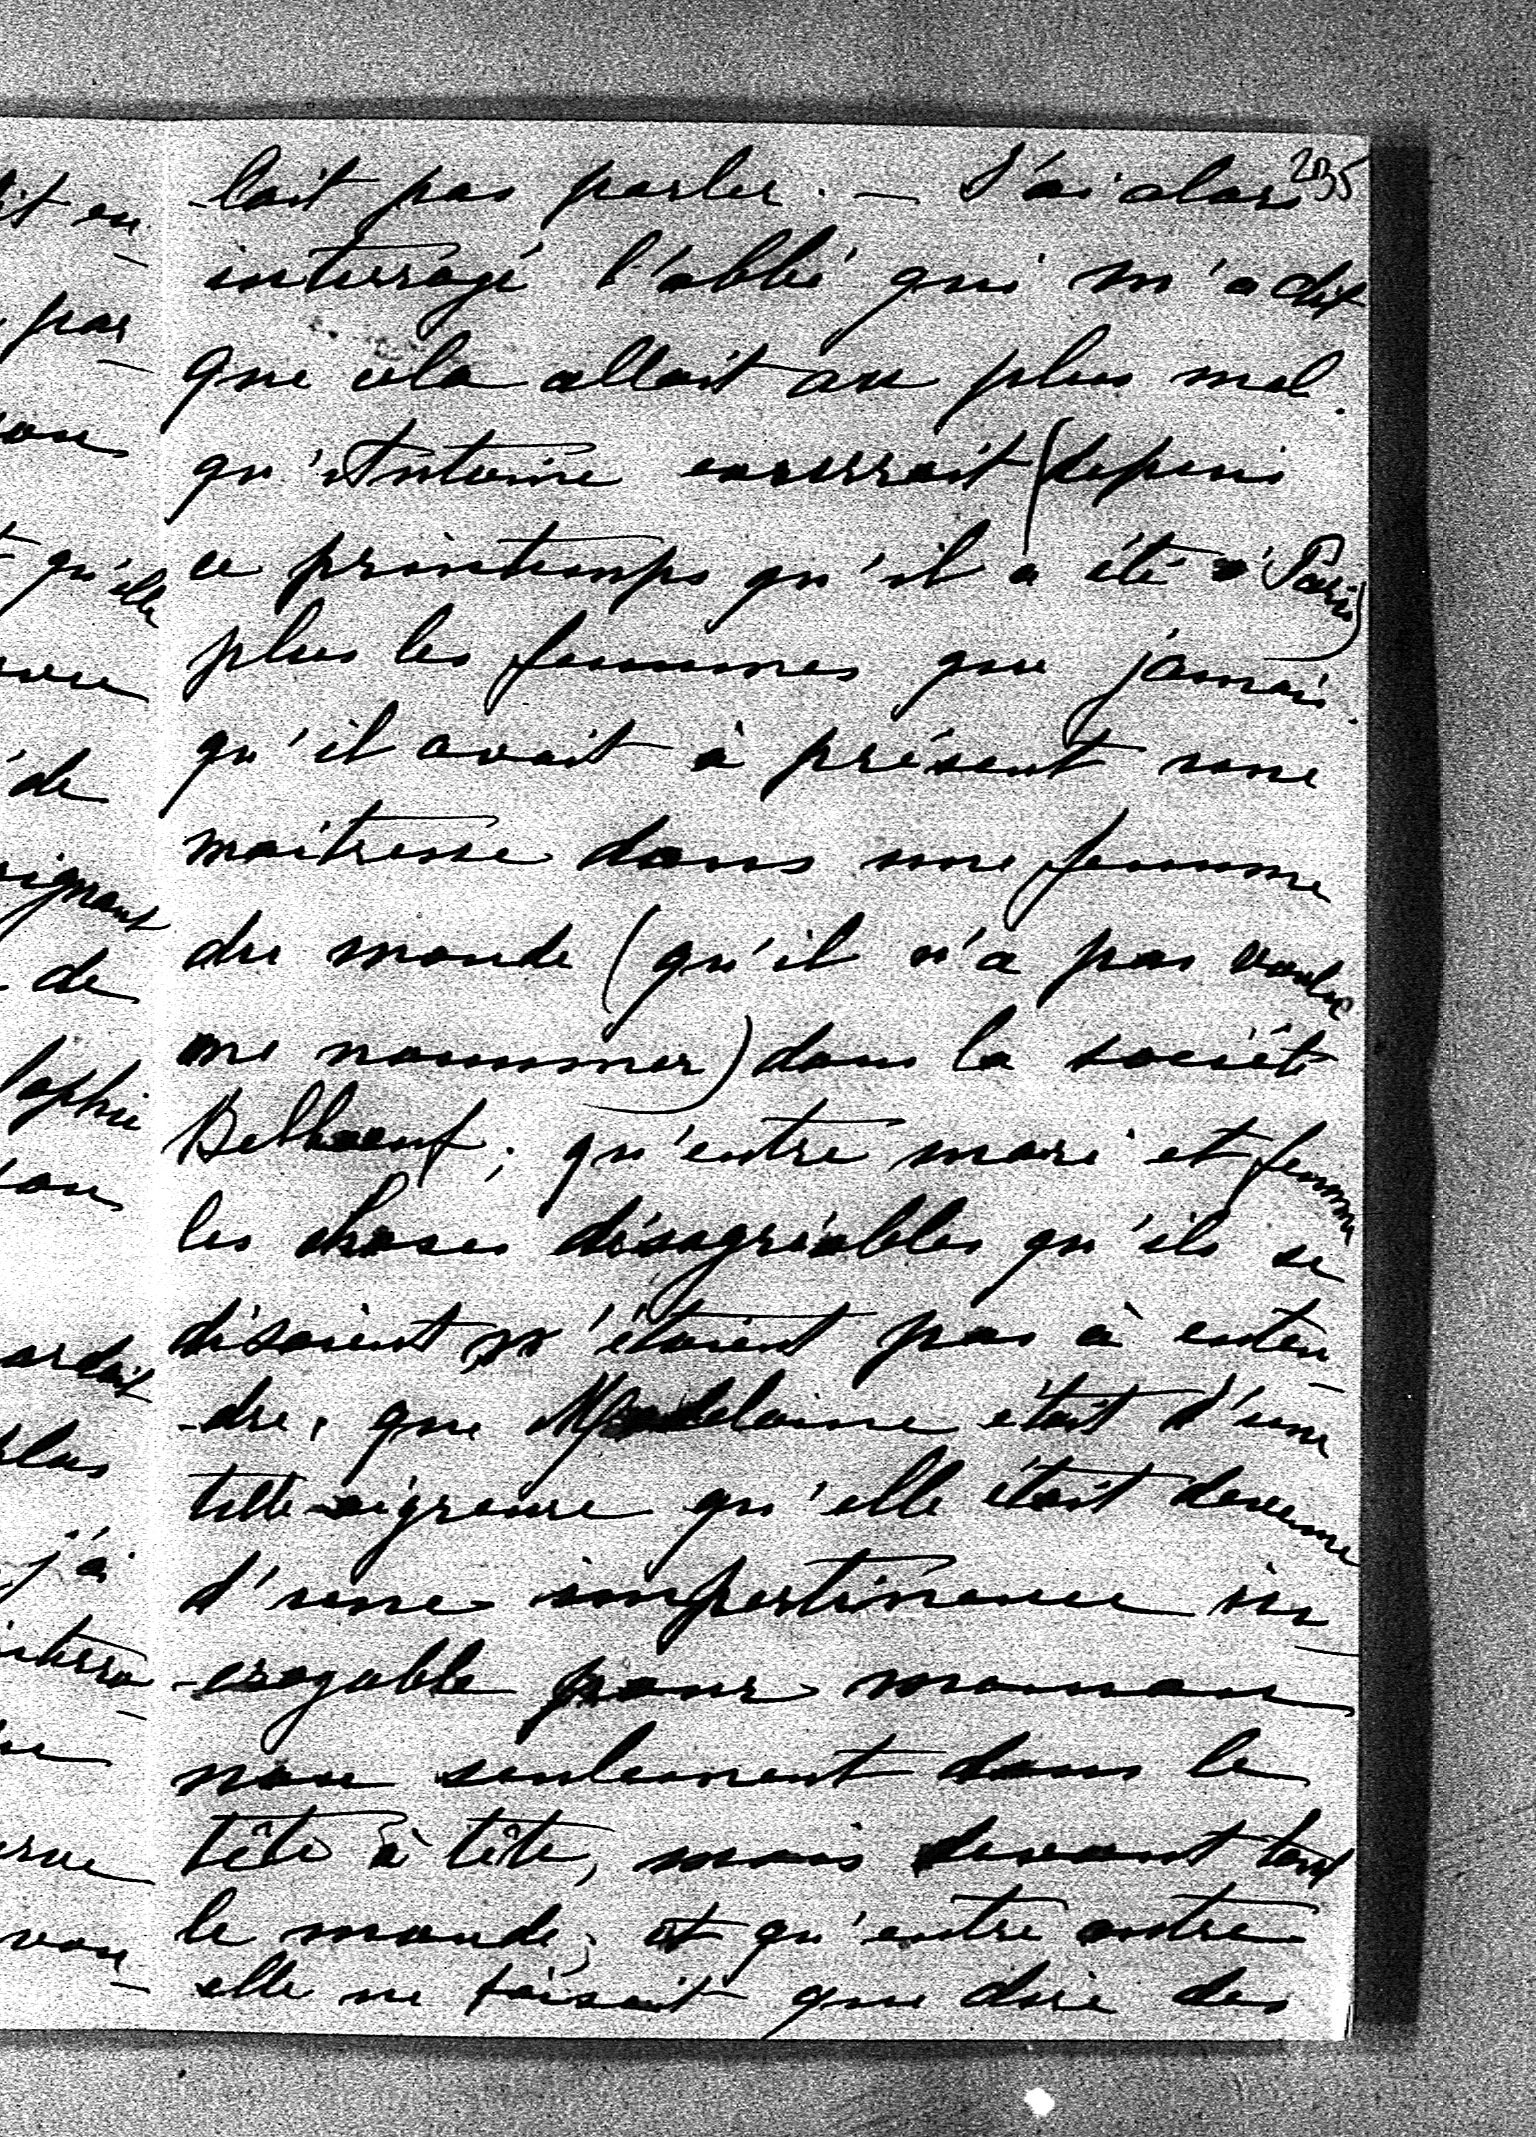 235
-lait pas parler. — J'ai alors
interrogé l'abbé qui m'a dit
que cela allait au plus mal.
qu'Antoine courrait (depuis
ce printemps qu'il a été à Paris)
plus les femmes que jamais.
qu'il avait à présent une
maitresse dans une femme
du monde (qu'il n'a pas voulu
me nommer) dans la société
Belboeuf; qu'entre mari et femme
les choses désagréables qu'ils se
disaient n'étaient pas à enten-
-dre, que Madelaine était d'une
telle aigreure qu'elle était devenue
d'une impertinence in-
-croyable pour maman
non seulement dans le
tête à tête, mais devant tout
le monde; et qu'entre autre
elle ne faisait que dire des
it en-
par-
de
qu'elle
de
Sophie
plus
j'ai
interro-